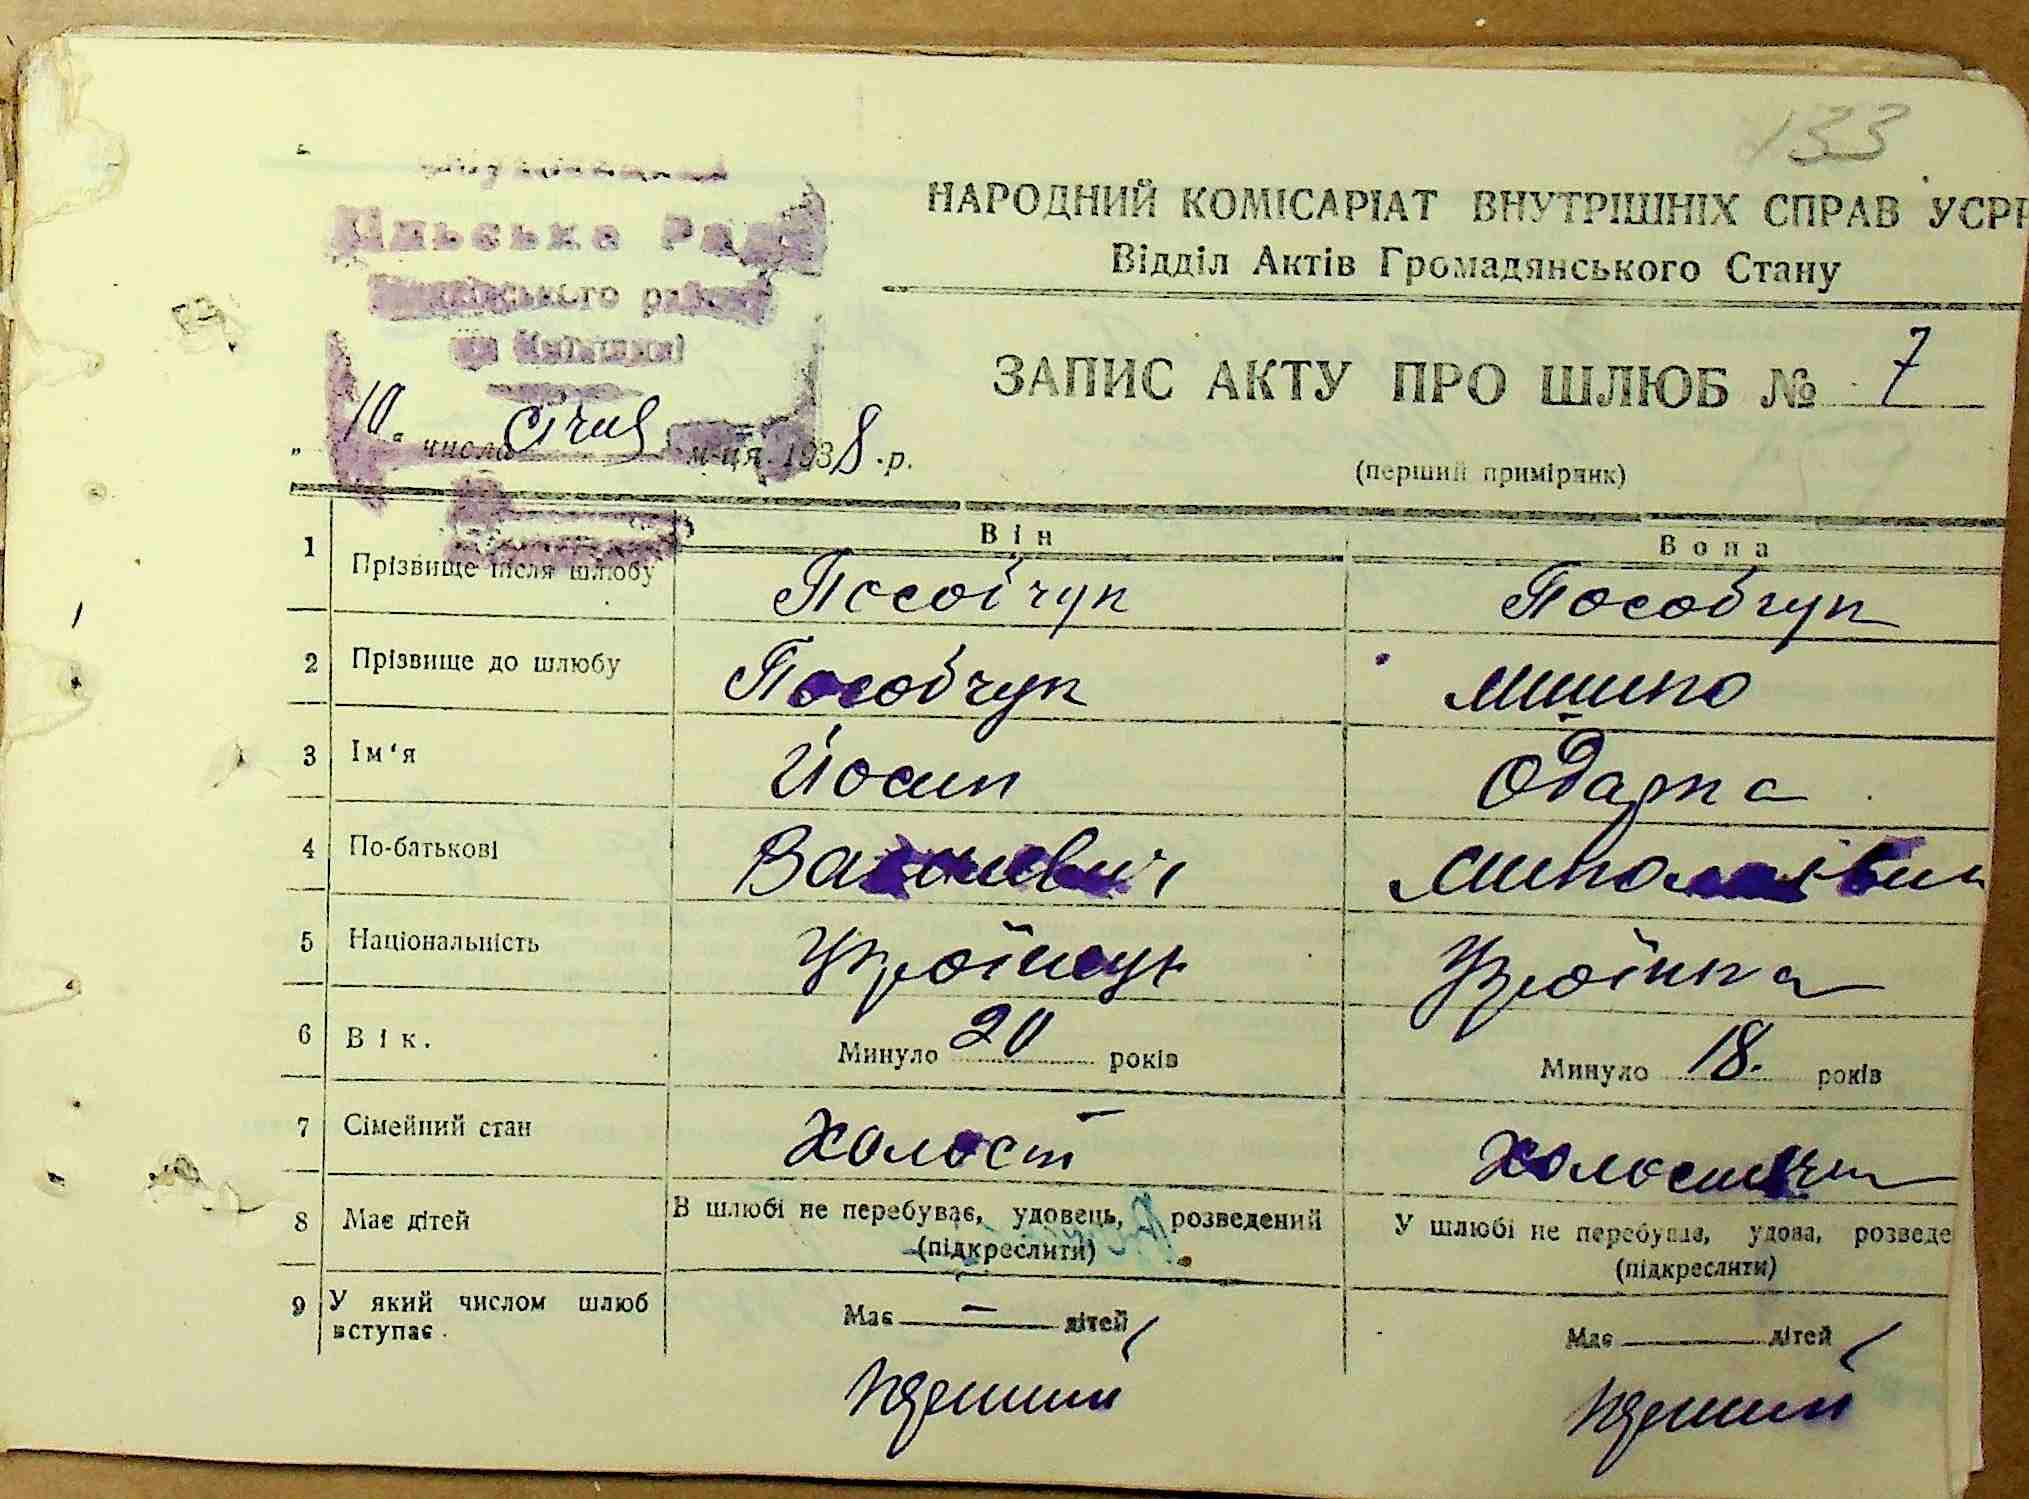 133
Сільська Рада
району
на Київщині
НАРОДНИЙ КОМІСАРІАТ ВНУТРІШНІХ СПРАВ УСРР
Відділ Актів Громадянського Стану
ЗАПИС АКТУ ПРО ШЛЮБ № 7
(перший примірник)
„ 10 " числа січня м-ця 1938 р.
Він Вона
1 Прізвище після шлюбу Пособчук Пособчук
2 Прізвище до шлюбу Пособчук
3 Ім'я Йосип Одарка
4 По-батькові
5 Національність Українець Українка
6 Вік. Минуло 20 років Минуло 18. років
7 Сімейний стан Холост
8 Має дітей В шлюбі не перебуває, удовець, розведений У шлюбі не перебуває, удова, розведе
(підкреслити) (підкреслити)
9 У який числом шлюб Має — дітей Має дітей
вступає. перший перший